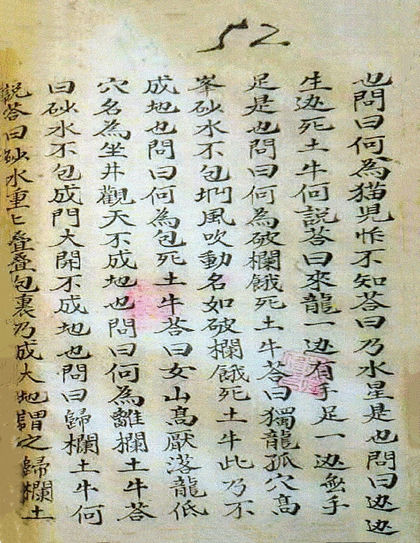 52
也問曰何為猫児怍不知答曰乃水星是也問曰边边
生边死土牛何説答曰來龍一边有手足一边無手
足是也問曰何為破欄餓死土牛答曰獨龍孤穴高
峯砂水不包坳風吹動名如破欄餓死土牛此乃不
成地也問曰何為包死土牛答曰女山高厭落龍低
穴名為坐井觀天不成地也問曰何為離欄土牛答
曰砂水不包成門大開不成地也問曰歸欄土牛何
説答曰砂水重〻叠叠包裏乃成大地謂之歸欄土